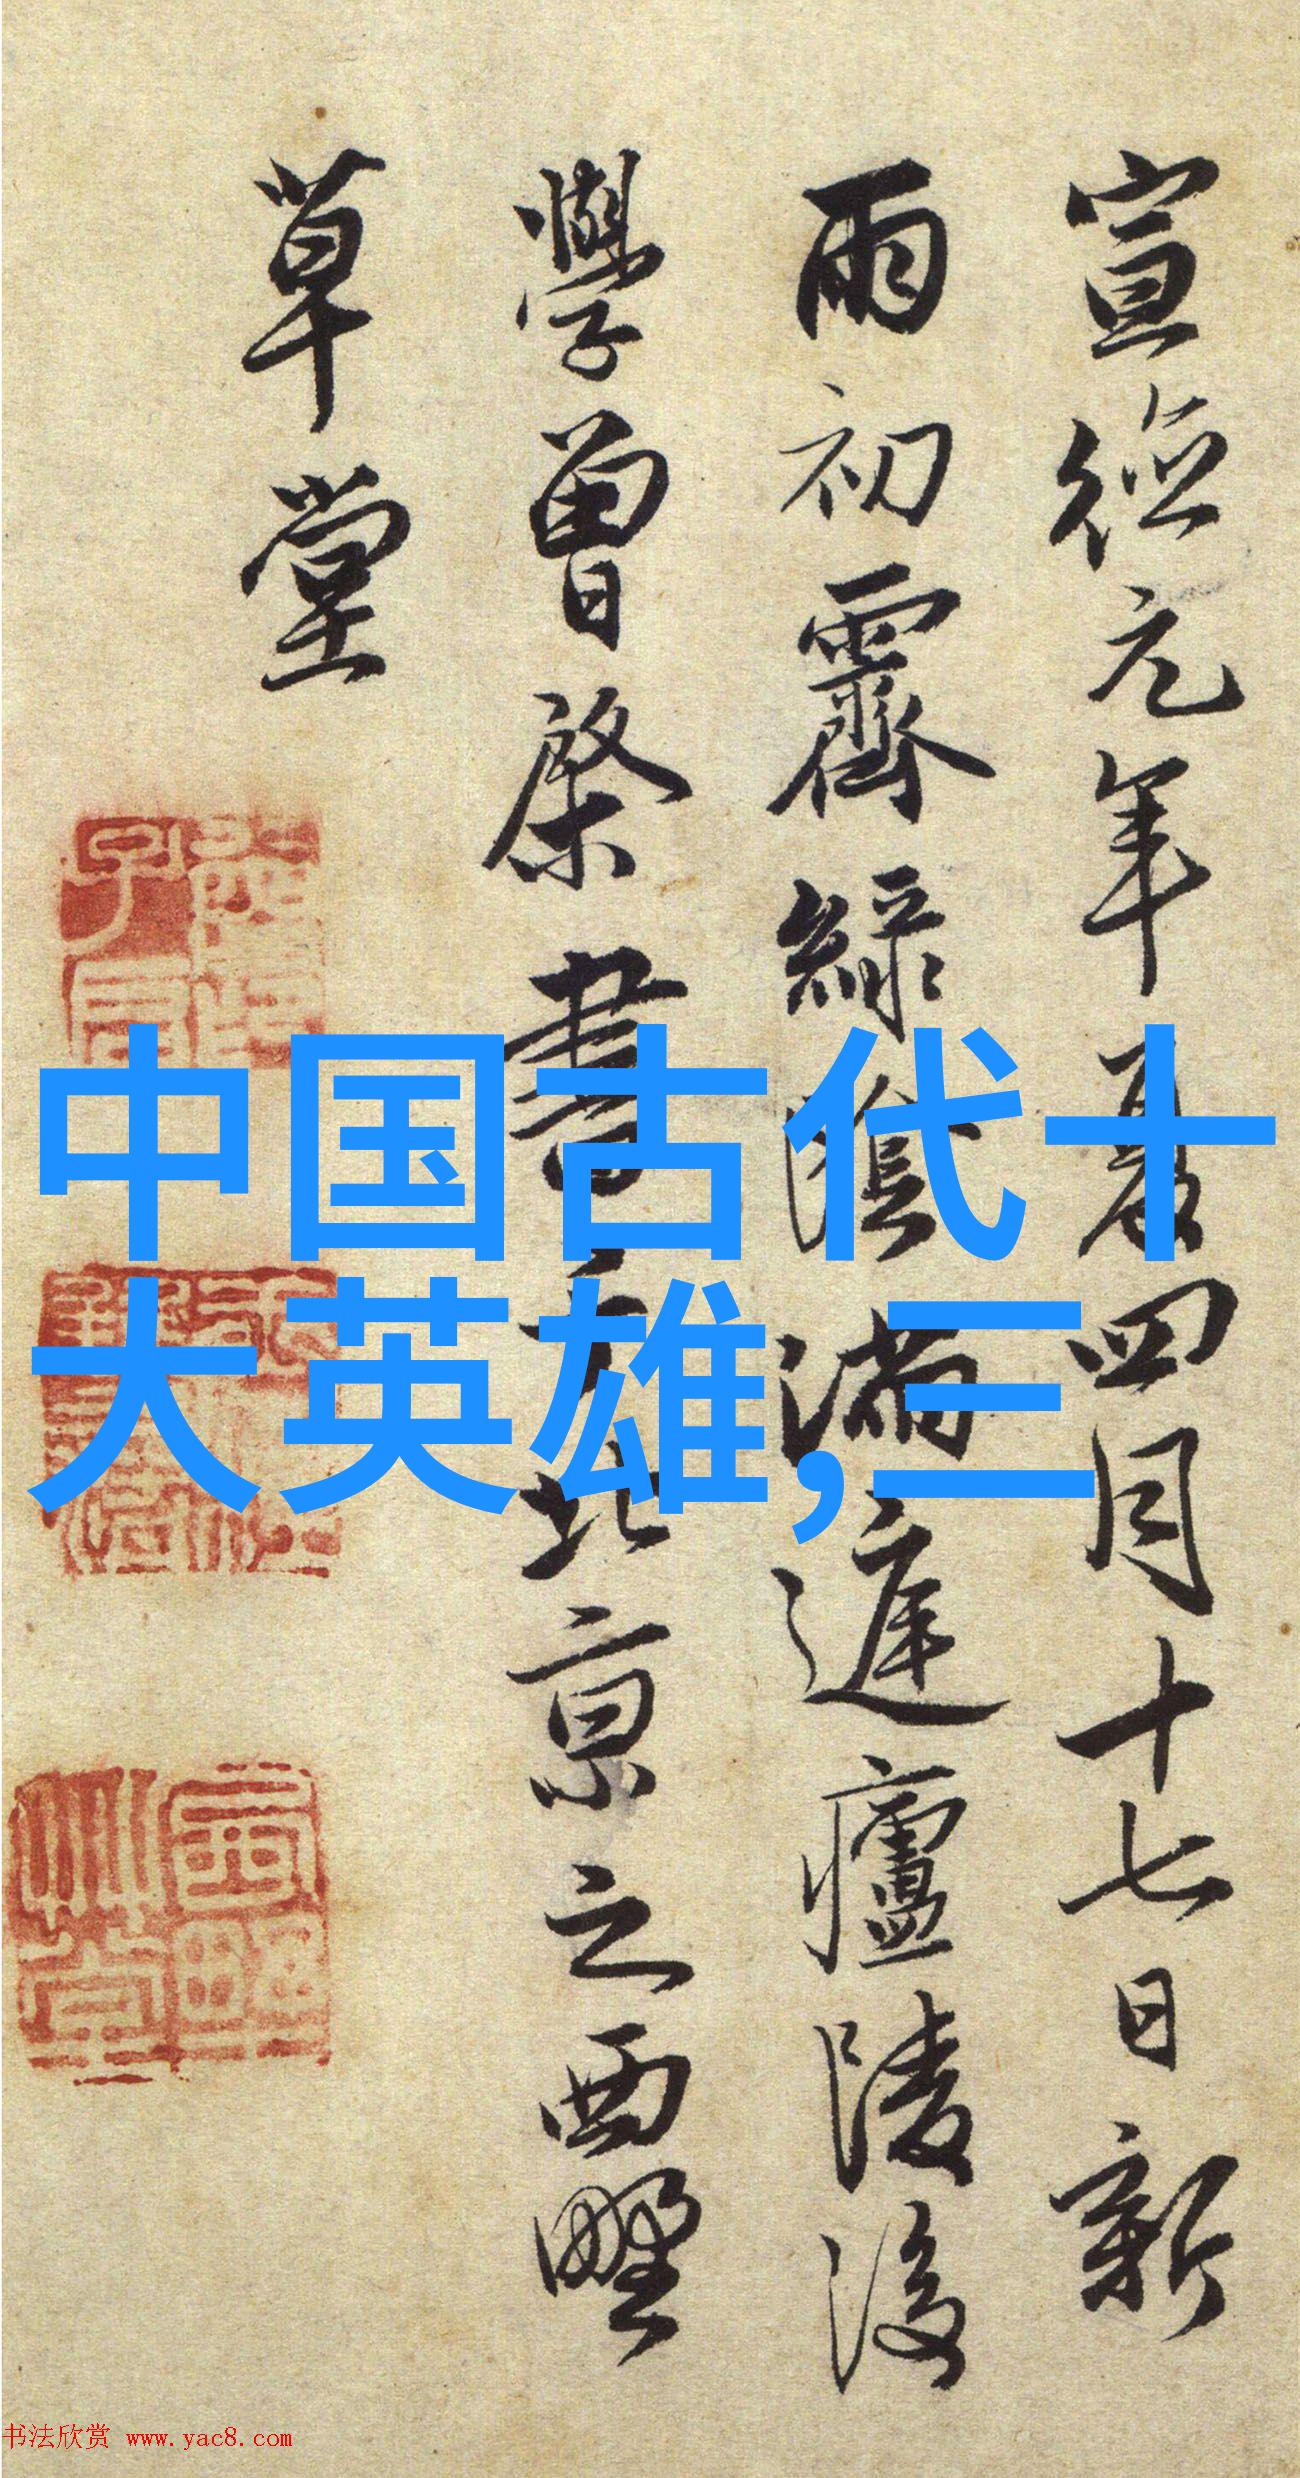 宣德元年夏四月十七日新
雨初霽綠陰滿遲廬陵後
學曾棨書于北京之西墅
草堂
中国古代十
大英雄,三
书法欣赏 www.yac8.com